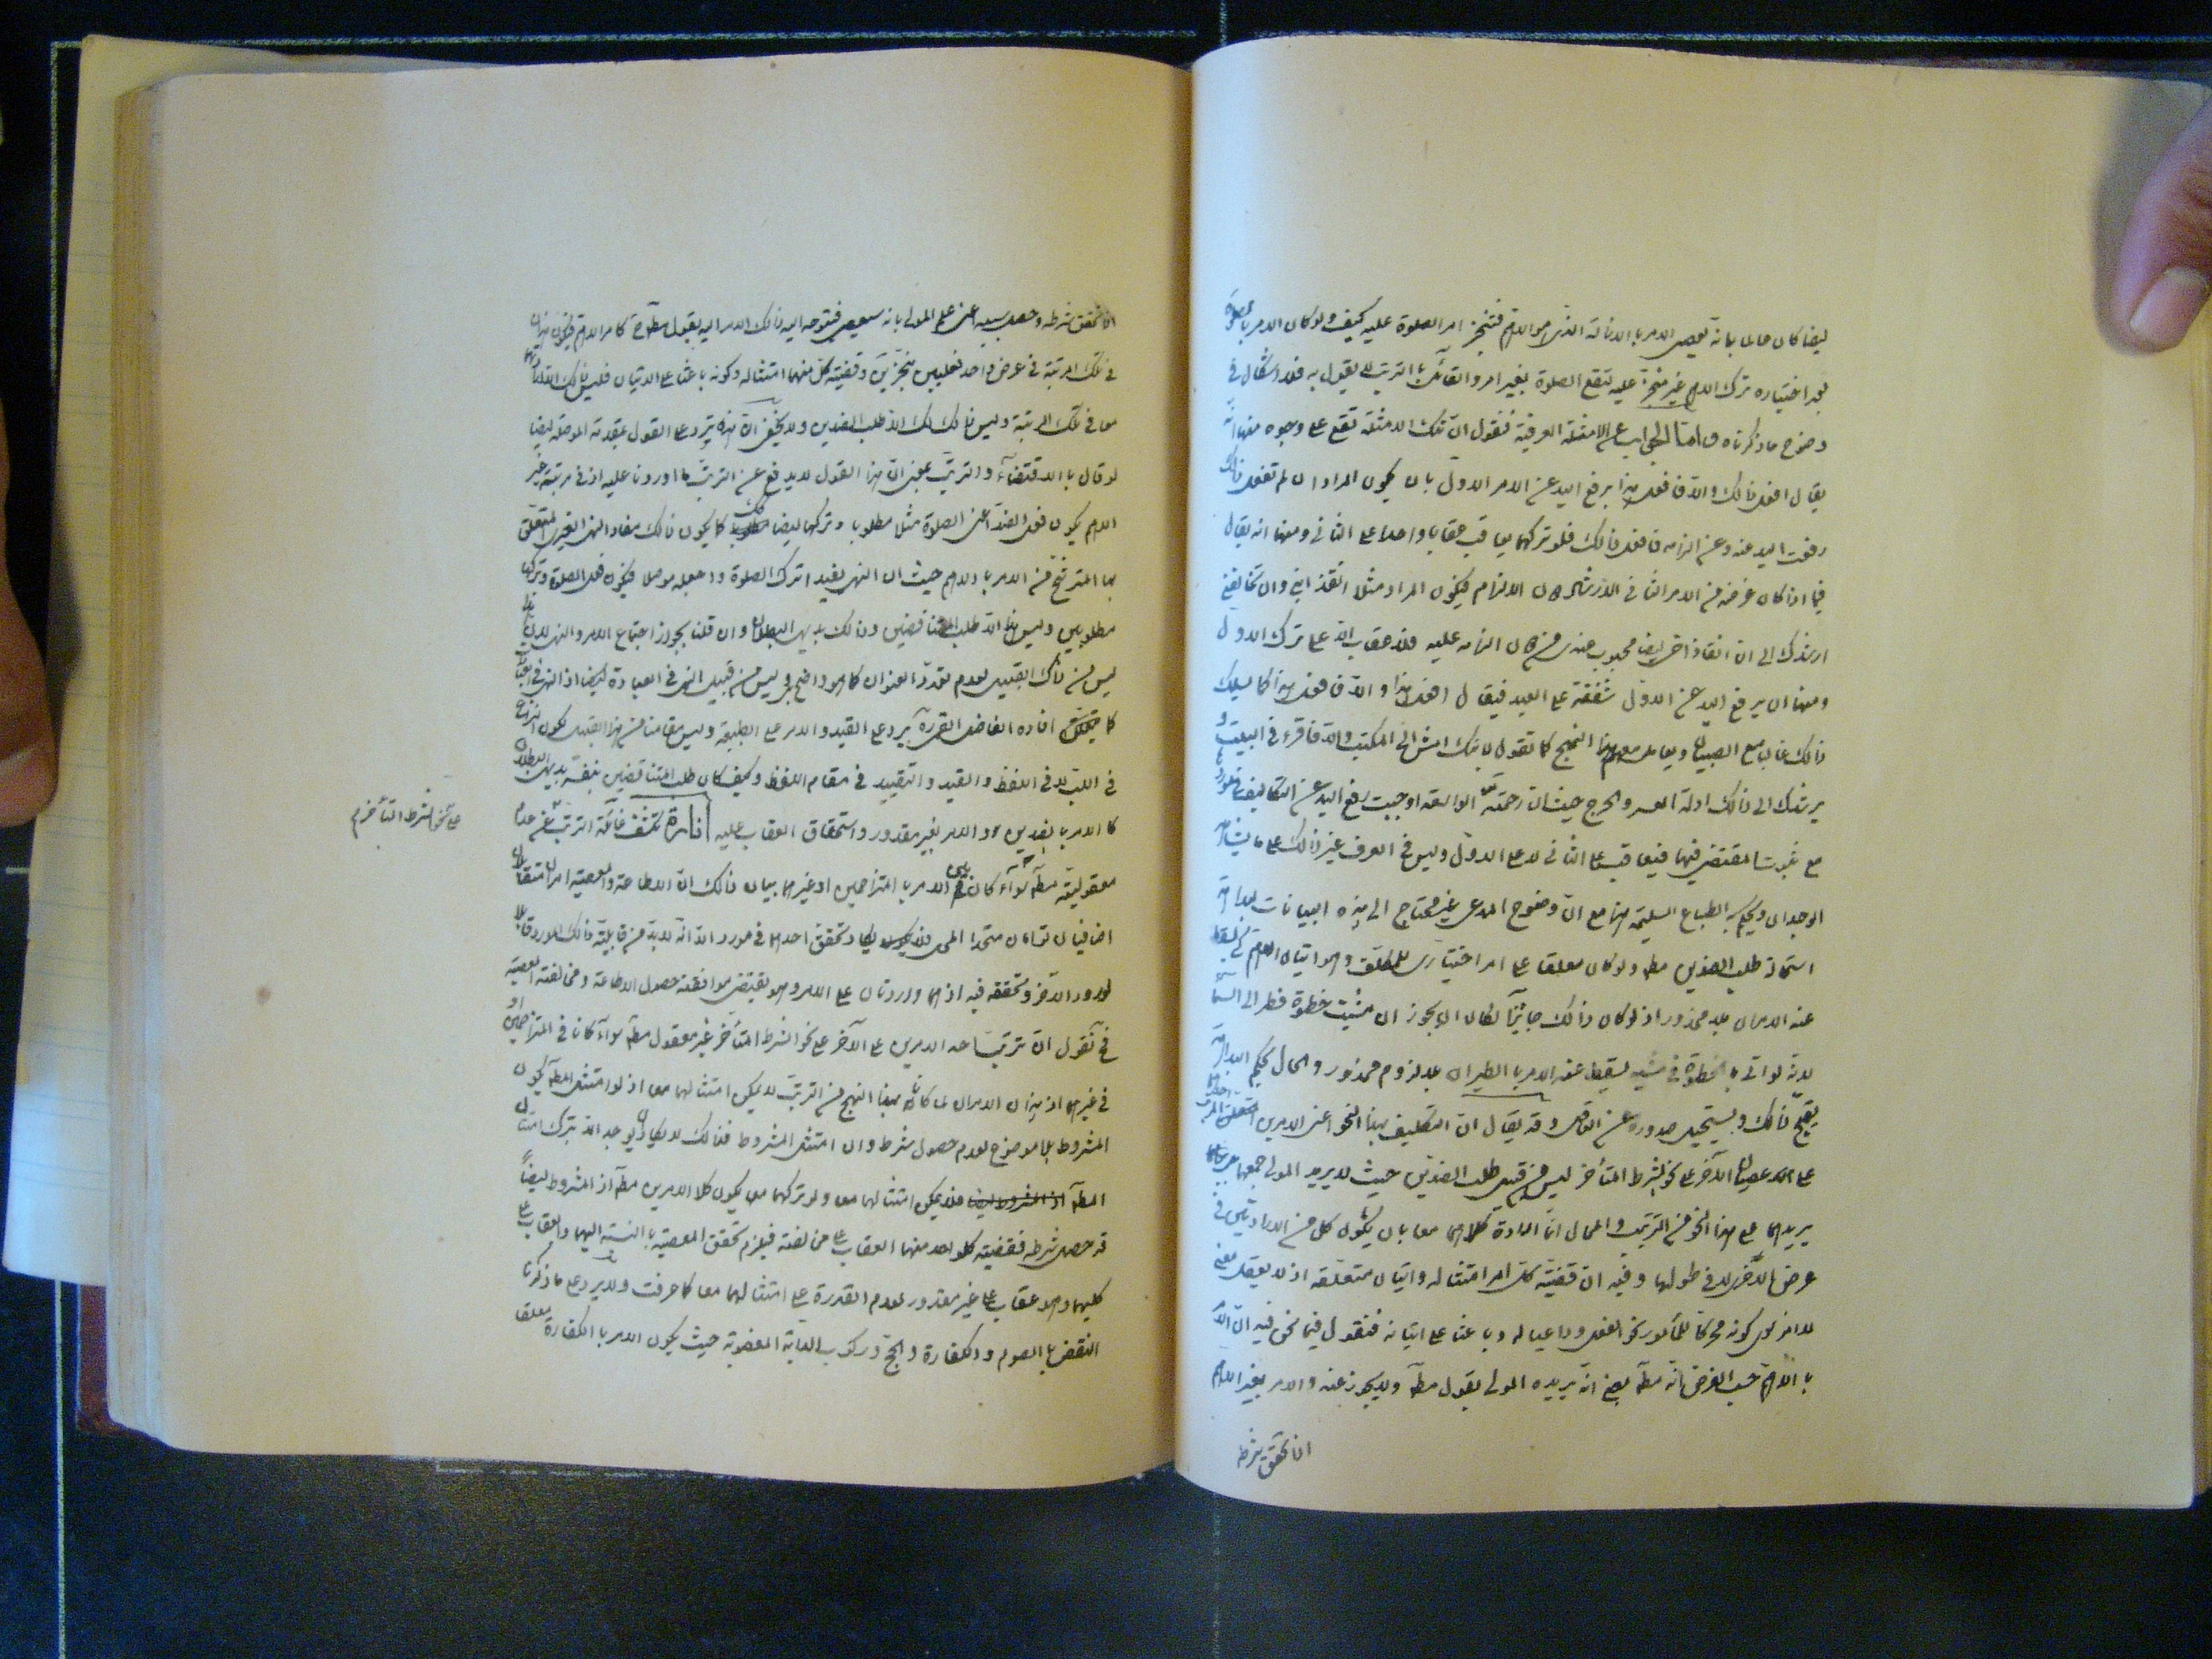 ايضا كان عالما بانه يعصى الامر بالازالة الذى هو الاهم فتنجز امر الصلوة عليه كيف ولو كان الامر بالصلوة
بعد اختياره ترك الاهم غير منجز عليه تقع الصلوة بغير امر والقائل بالترتب لا يقول به فلا اشكال فى
وضوح ما ذكرناه واما الجواب عن الامثلة العرفية فنقول ان تلك الامثلة تقع على وجوه منها انه
يقال افعل ذلك والا فافعل هذا برفع اليد عن الامر الاول بان يكون المراد ان لم تفعل ذلك
رفعت اليد عنه وعن الزامه فافعل ذلك فلو تركهما يعاقب عقابا واحدا على الثانى ومنها انه يقال
فيما اذا كان غرضه من الامر الثانى الارشاد الى الالزام فيكون المراد مثلا انقذ ابنى وان تخالفنى
ارشدك الى ان انقاذ اخى ايضا محبوب عندى من الزامه عليه فلا عقاب الا على ترك الاول
ومنها ان يرفع اليد عن الاول شفقة على العبد فيقال افعل هذا والا فافعل هذا كما يسلك
ذلك غالبا مع الصبيان ويعامل معهم بهذا النهج كما تقول لابنك امش الى المكتب والا فاقرء فى البيت و
يرشدك الى ذلك ادلة العسر والحرج حيث ان رحمته الواسعة اوجبت رفع اليد عن التكاليف فى موردها
مع ثبوت المقتضى فيها فيعاقب على الثانى لا على الاول وليس فى العرف غير ذلك على ما يشاهد
الوجدان ويحكم به الطباع السليمة هذا مع ان وضوح المدعى غير محتاج الى هذه البيانات بداهة
استحالة طلب الضدين مطلقا ولو كان معلقا على امر اختيارى للمكلف وهو اتيان الاهم كى يسقط
عنه الامران بلا محذور اذ لو كان ذلك جائزا لكان ان يجوز ان مشيت خطوة فطر الى السماء
لانه لو اتى بالخطوة فى مشيه يسقط عنه الامر بالطيران بلا لزوم محذور والحال يحكم البداهة
بقبح ذلك ويستحيل صدوره عن العاقل وقد يقال ان التكليف بهذا النحو اعنى الامرين المعلق احدهما
على عصيان الآخر على نحو الشرط المتأخر ليس من قبيل طلب الضدين حيث لا يريد المولى جمعهما
يريدهما على هذا النحو من الترتب والمحال انما ارادة كلاهما معا بان يكون كل من الارادتين فى
عرض الاخرى لا فى طولها وفيه ان قضية كل امر امتثاله واتيان متعلقه اذ لا يعقل معنى
للامر سوى كونه محركا للمأمور نحو الفعل وداعيا له وباعثا على اتيانه فنقول فيما نحن فيه ان الامر
بالاهم حسب الفرض انه مطلق بمعنى انه يريده المولى بقول مطلق ولا يجوز عنه والامر بغير الاهم
اذا تحقق شرطه
اذا تحقق شرطه وحصل سببه اعنى علم المولى بانه سيعصى فتوجه اليه ذلك الامر اليه بقول مطلق كامر الاهم فيكون هذان
فى تلك المرتبة فى عرض واحد فعليين منجزين وقضية كل منهما امتثاله وكونه باعثا على الاتيان فلذلك
معا فى تلك المرتبة وليس ذلك الا طلب الضدين ولا يخفى ان هذا يرد على القول بمقدمة الموصلة ايضا
لو قال بالاقتضاء والترتب بمعنى ان هذا القول لا يدفع عن الترتب ما اوردنا عليه اذ فى مرتبة غير
الاهم يكون فعل الضد اعنى الصلوة مثلا مطلوبا وتركها ايضا كذلك كما يكون ذلك مفاد النهى الغيرى المتعلق
بها المترشح من الامر بالاهم حيث ان النهى يفيد اترك الصلوة واجعله موصلا فيكون فعل الصلوة وتركها
مطلوبين وليس هذا الا طلب المتناقضين وذلك بديهى البطلان وان قلنا بجواز اجتماع الامر والنهى لان هذا
ليس من ذلك القبيل لعدم تعدد العنوان كما هو واضح وليس من قبيل النهى فى العبادة ايضا اذ النهى فى العبادة
كما افاده الفاضل القمى ره يرد على القيد والامر على الطبيعة وليس مقامنا من هذا القبيل لكون النزاع
فى اللب لا فى اللفظ والقيد والتقييد فى مقام اللفظ وكيف كان طلب المتناقضين بنفسه بديهى البطلان
كالامر بالضدين والامر بغير مقدور واستحقاق العقاب عليه انارة تكشف غائلة الترتب عن عدم
معقوليته مطلقا سواء كان فى الامر بالمتزاحمين او غيرهما بيان ذلك ان الاطاعة والمعصية امران متقابلان
اضافيان تواردان متحدا المحل ولا يكاد تحقق احدهما فى مورد الا انه لابد من قابلية ذلك المورد قابلا
لورود الآخر وتحققه فيه اذ هما واردتان على الامر وهو يقتضى موافقته حصول الاطاعة ومخالفته المعصية
فح نقول ان ترتب احد الامرين على الآخر على نحو الشرط المتأخر غير معقول مطلقا سواء كانا فى المتزاحمين او
فى غيرهما اذ هذان الامران لما كانا بهذا النهج من الترتب لا يمكن امتثالهما معا اذ لو امتثل المطلق يكون
المشروط بلا موضوع لعدم حصول شرطه وان امتثل المشروط فذلك لا يكاد يوجد الا بترك امتثال
المطلق فلا يمكن امتثالهما معا ولو تركهما معا يكون كلا الامرين مطلقا اذ المشروط ايضا
قد حصل شرطه فقضية كل واحد منهما العقاب على مخالفته فيلزم تحقق المعصية بالنسبة اليهما والعقاب على
كليهما وهو عقاب على غير مقدور لعدم القدرة على امتثالهما معا كما عرفت ولا يرد على ما ذكرنا
النقض بالصوم والكفارة والحج وركوب الدابة المغصوبة حيث يكون الامر بالكفارة معلقا
على نحو الشرط المتأخر